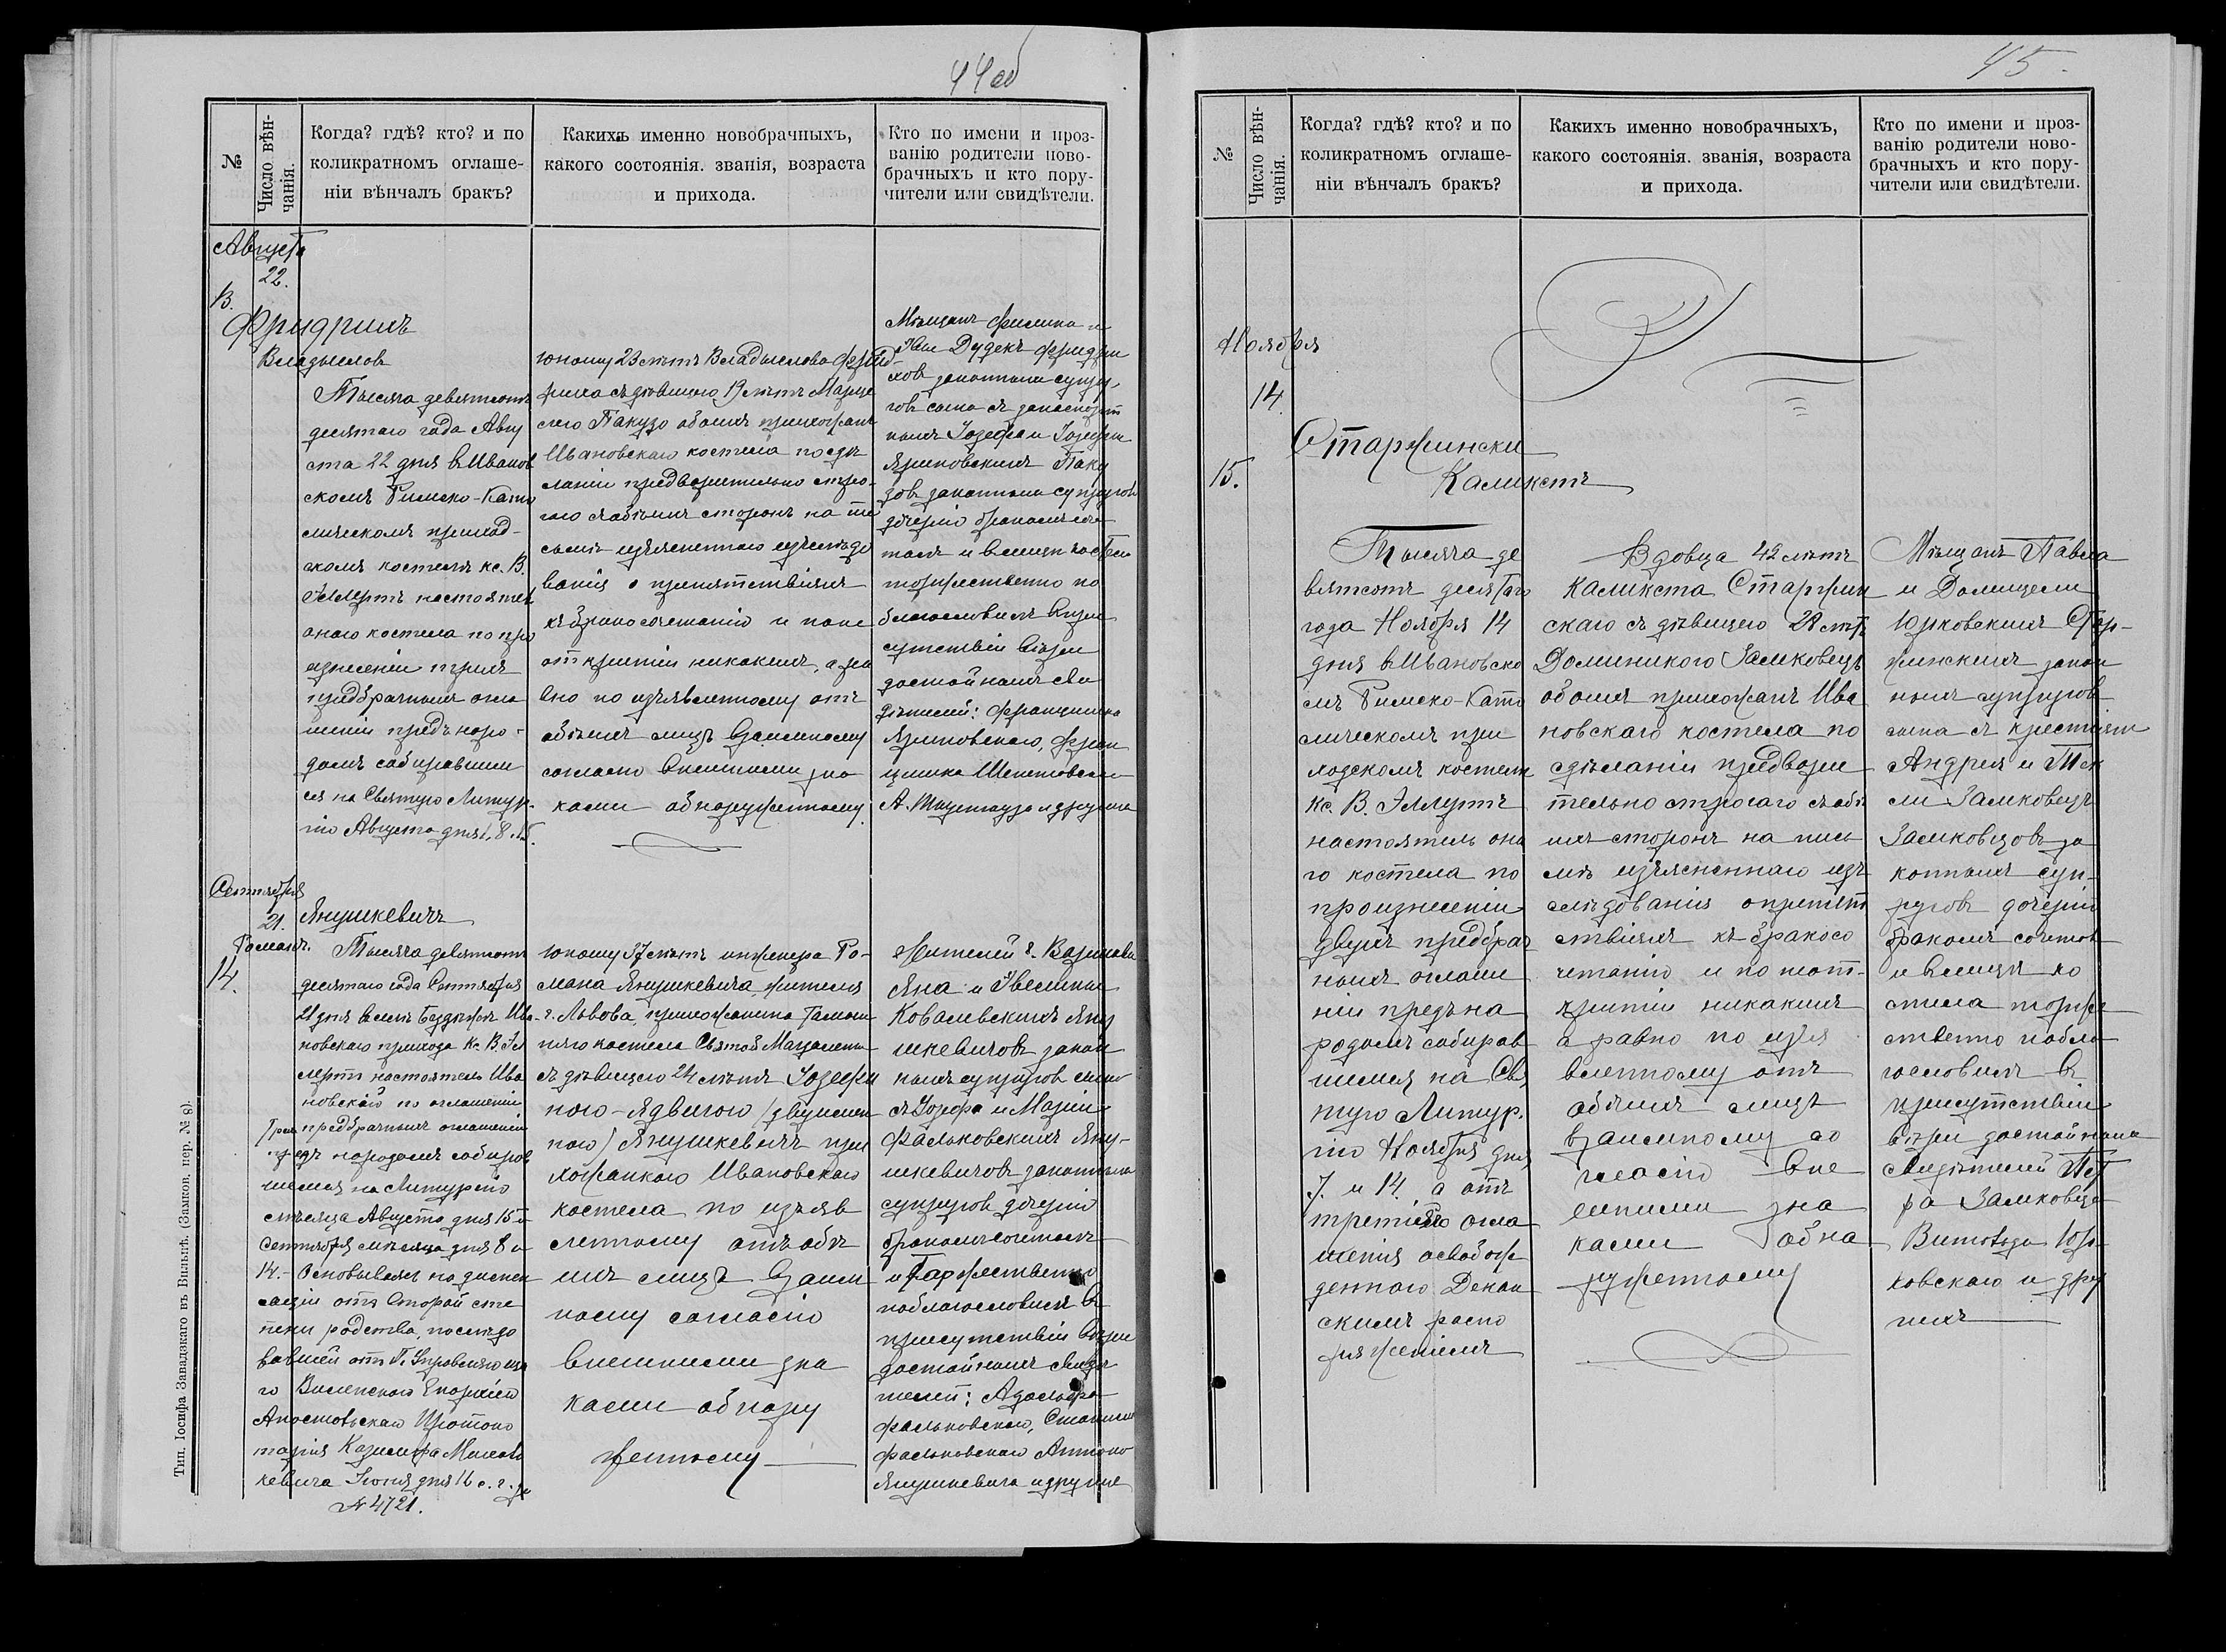 44об
№
Число вѣн-
чанія.
Когда? гдѣ? кто? и по
коликратномъ оглаше-
ніи вѣнчалъ бракъ?
Какихъ именно новобрачныхъ,
какого состоянія. званія, возраста
и прихода.
Кто по имени и проз-
ванію родители ново-
брачныхъ и кто пору-
чители или свидѣтели.
Августа
22.
13.
Фридрихъ
Владыслов
Тысяча девятсотъ
десятаго года Авгу
ста 22 дня в Иванов
скомъ Римско-Като
лическомъ приход-
скомъ костелѣ кс. В.
Эллертъ настоятель
онаго костела по про
изнесеніи трехъ
предбрачныхъ огла
шеній предъ наро-
домъ собиравшим
ся на Святую Литур-
гію Августа дня 1, 8, 15.
юношу 23 лѣтъ Владыслова Фрид-
риха съ дѣвицею 19 лѣтъ Марце
лею Пакузо обоихъ прихожан
Ивановскаго костела по сдѣ
ланіи предварительно стро-
гаго с обѣихъ сторонъ на пи
сьмѣ изъясненнаго изслѣдо
ванія о препятствіяхъ
къ бракосочетанію и по не
открытіи никакихъ, а ра
вно по изъявленному отъ
обѣихъ лицъ взаимному
согласію внешними зна
ками обнаруженному.
Мѣщанъ Филиппа и
Дудекъ Фридри
ховъ законныхъ супру
говъ сына съ
ными Іозефа и Іозефы
Яриновскихъ Паку
зовъ законныхъ супруговъ
дочерію бракомъ соче
талъ и в лицѣ костела
торжественно по
благословилъ въ при
сутствіи вѣры
достойныхъ сви
дѣтелей: Францишка
Яриновскаго, Фран
цишка
А. и другихъ
Сентября
21.
Янушкевичъ
Романъ.
14.
Тысяча девятсотъ
десятаго года Сентября
21 дня в имѣ Бездѣжъ Ива-
новскаго прихода Кс. В. Эл
лертъ настоятель Ива
новскаго по оглашеніи
трехъ предбрачныхъ оглашеній
предъ народомъ собирав
шемся на Литургію
мѣсяца Августа дня 15 и
Сентября мѣсяца дня 8 и
14.- Основываясь на диспен
саціи отъ второй сте
пени родства, послѣдо
вавшей отъ П. Управляюща
го Виленскою Епархіею
Апостольскаго Протоно
тарія Казимира Михаль
кевича Іюня дня 16 с. г. за
№ 4721.
юношу 37 лѣтъ инженера Ро-
мана Янушкевича, жителя
г. Львова, прихожанина тамош
няго костела Святой Магдалены
съ дѣвицею 24 лѣтъ Іозефи
ною-Ядвигою (двуимен
ною) Янушкевичъ при
хожанкою Ивановскаго
костела по изъяв
ленному отъ обѣ
ихъ лицъ взаим
ному согласію
внешними зна
ками обнару
женному
Жителей г. Варшавы
Яна и Эвелины
Ковалевскихъ Яну
шкевичовъ закон
ныхъ супруговъ сына
съ Іозефа и Маріи
Фальковскихъ Яну-
шкевичовъ законныхъ
супруговъ дочерію
бракомъ сочеталъ
и торжественно
поблагословилъ въ
присутствіи вѣры
достойныхъ свидѣ
телей: Адольфа
Фальковскаго, Станислав
Фальковскаго Антоно
Янушкевича и другихъ
Тип. Іосифа Завадзкаго въ Вильнѣ. (Замков. пер. № 8).
45.
№
Число вѣн-
чанія.
Когда? гдѣ? кто? и по
коликратномъ оглаше-
ніи вѣнчалъ бракъ?
Какихъ именно новобрачныхъ,
какого состоянія. званія, возраста
и прихода.
Кто по имени и проз-
ванію родители ново-
брачныхъ и кто пору-
чители или свидѣтели.
Ноября
14.
15.
Старжински
Каликстъ
Тысяча де
вятсотъ десятаго
года Ноября 14
дня в Ивановско
мъ Римско-Като
лическомъ при
ходскомъ костелѣ
кс. В. Эллертъ
настоятель она
го костела по
произнесеніи
двухъ предбрач
ныхъ оглаше
ній предъ на
родомъ собирав
шимся на Свя
тую Литур.
гію Ноября дня
7. и 14. а отъ
третьяго огла
шенія освобож
деннаго Декан
скимъ распо
ряженіемъ
Вдовца 42 лѣтъ
Каликста Старжин
скаго съ дѣвицею 28 лѣтъ
Доминикою Замковецъ
обоихъ прихожанъ Ива
новскаго костела по
сдѣланіи предвари
тельно строгаго с обѣ
ихъ сторонъ на пись
мѣ изъясненнаго изъ
слѣдованія о препят
ствіяхъ къ бракосо
четанію и по неот-
крытіи никакихъ
а равно по изъя
вленному отъ
обѣихъ лицъ
взаимному со
гласію вне
шними зна
ками обна
руженному
Мѣщанъ Павла
и Домицели
Юрковскихъ Стар-
жинскихъ закон
ныхъ супруговъ
сына съ крестьянъ
Андрея и Тек
ли Замковецъ
Замковцовъ за
конныхъ суп-
руговъ дочерію
бракомъ сочетал
и в лицѣ ко
стела торже
ственно побла
гословилъ въ
присутствіи
вѣры достойныхъ
Свидѣтелей Пет
ра Замковца
Витольда Юр
ковскаго и дру
гихъ